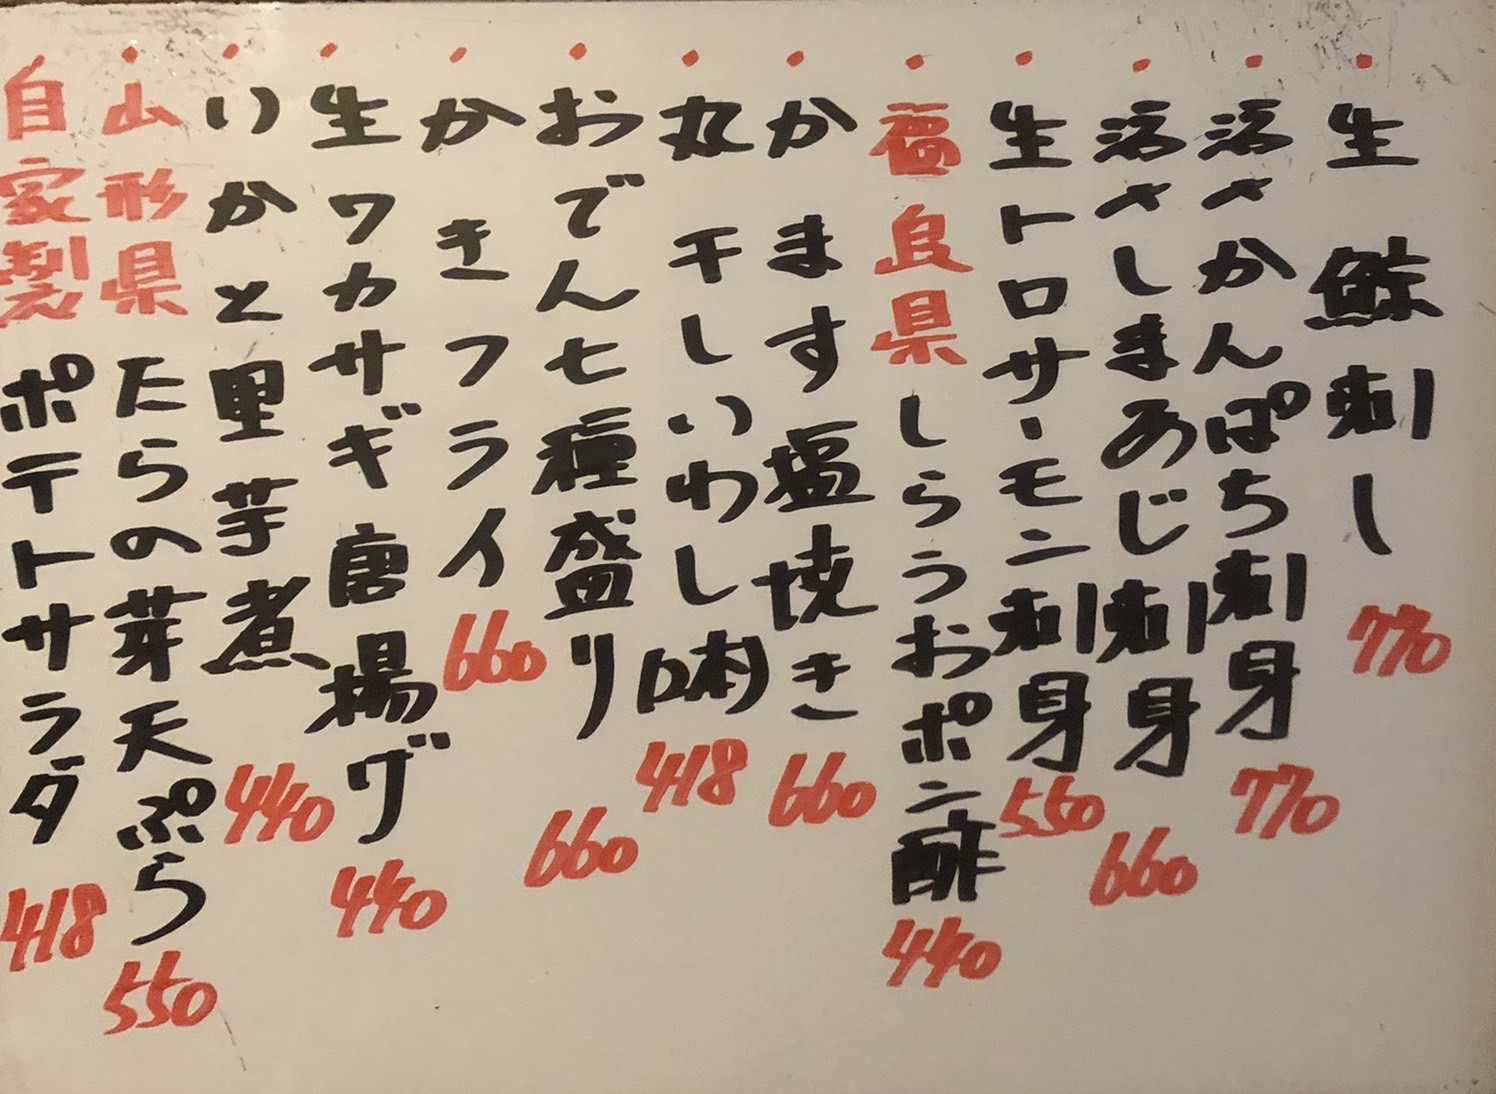 ・生鯨刺し 770
・活〆かんぱち刺身 770
・活〆しまあじ刺身 660
・生トロサーモン刺身 550
・福良県しらうおポン酢 440
・かます塩焼き 660
・丸干しいわし 418
・おでん七種盛り 660
・かきフライ 660
・生ワカサギ唐揚げ 440
・いかと里芋煮 440
・山形県たらの芽天ぷら 550
自家製ポテトサラダ 418